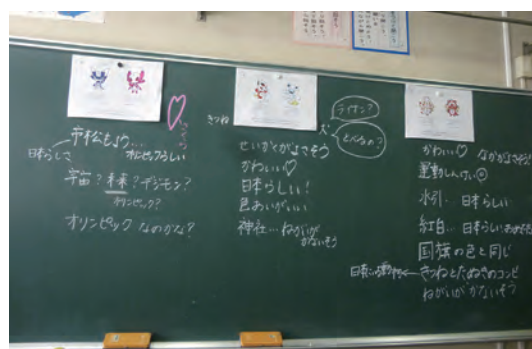 さくら
市松もよう…
日本らしさ
オリンピックらしい
宇宙？未来？デジモン？
オリンピック？
オリンピック なのかな？
きつね
ライオン？
犬
とべるの？
せいかくがよさそう
かわいい♡
日本らしい！
色あいがいい
神社…ねがいが
かないそう
かわいい♡ なかがよさそう！
運動しんけい◎
水引…日本らしい
紅白…日本らしい
国旗の色と同じ
きつねとたぬきのコンビ
ねがいがかないそう